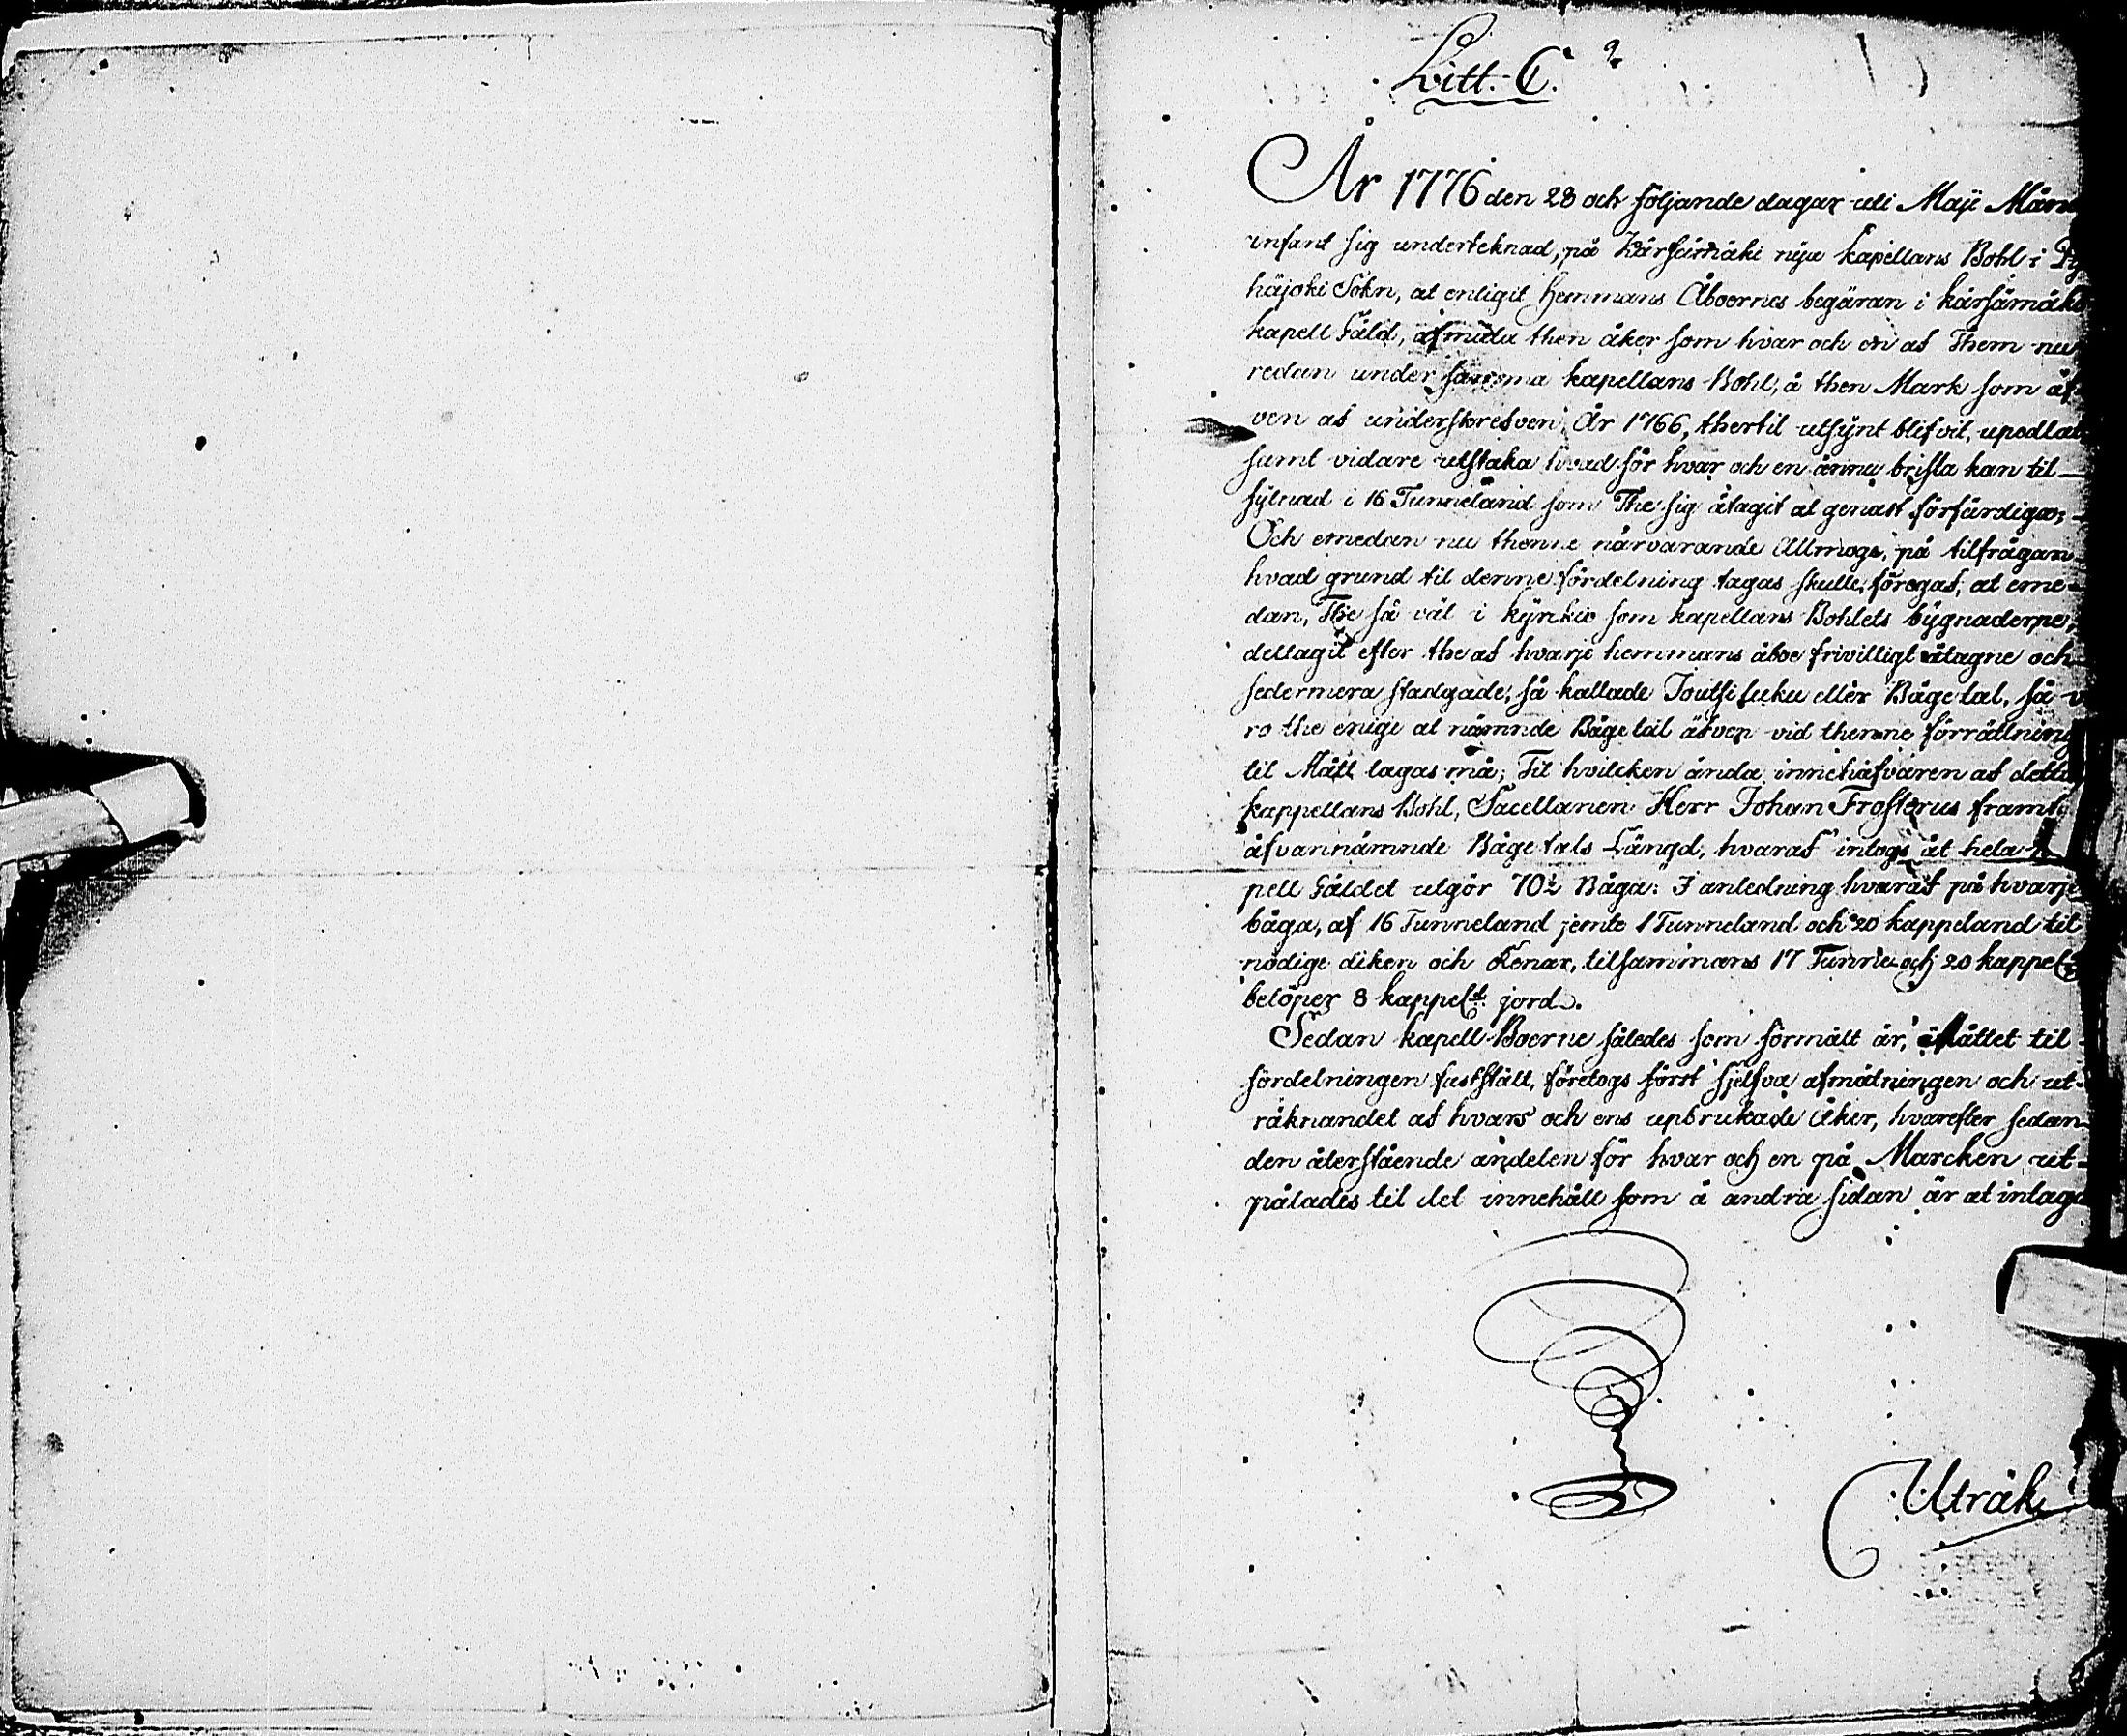 Litt. C.
År 1776 den 28 och följande dagar uti Maji Mån
infant sig underteknad, på Kärsämäki nya kapellans Bohl i Py
häjoki Sokn, at enligit Hemmans Åboernes begäran i kärsämäki
kapell Gäld, afmäta then åker som hvar och en af Them nu
redan under samma kapellans Bohl, å then Mark som äf-
ven af understoresven År 1766, thertil utsynt blifvit, upodlat
samt vidare utstaka hvad för hvar och en ännu brista kan til
fylnad i 16 Tunneland som The sig åtagit at genast förfärdiga;
Och emedan nu thenne närvarande Allmoge, på tilfrågan
hvad grund til denne fördelning tagas skulle, föregaf, at eme-
dan, The så väl i kyrkio som kapellans Bohlets bygnaderne,
deltagit efter the af hvarje hemmans åboe frivilligt åtagne och
sedermera stadgade, så kallade Joutsi luku eller Båge tal, så v
ro the enige at nämnde Bågetal äfven vid thenne förrättning
til Mått tagas må; Til hvilcken ända innehafvaren af detta
kappellans Bohl, Sacellanen Herr Johan Frosterus framte
åfvannämnde Båge tals Längd, hvaraf intogs at hela
pell Gäldet utgör 70½ Båga: I anledning hvaraf på hvarje
båga, af 16 Tunneland jemte 1 Tunneland och 20 kappeland til
nödige diken och Renar, tilsammans 17 Tunne och 20 kappel
belöper 8 kappel:d jord.
Sedan kapell Boerne således som förmält är, Måttet til
fördelningen fastställt, företogs först sjelfva afmätningen och ut-
räknandet af hvars och ens upbrukade Åker, hvarefter sedan
den återstående andelen för hvar och en på Marcken ut-
pålades til det innehåll som å andra sidan är at intaga
Uträk